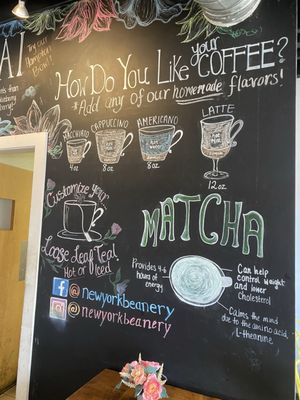 AI
Try Our
Hampton
Blue!
How Do You Like your Coffee?
*Add any of our homemade flavors!
CAPPUCCINO
AMERICANO
LATTE
4oz
8oz
8oz
12oz
Customize Your
Loose Leaf Tea!
Hot or Iced
MATCHA
Provides 4-6
hours of
energy
Can help
control weight
and lower
Cholesterol
Calms the mind
due to the amino acid
L-theanine
@newyorkbeanery
@newyorkbeanery